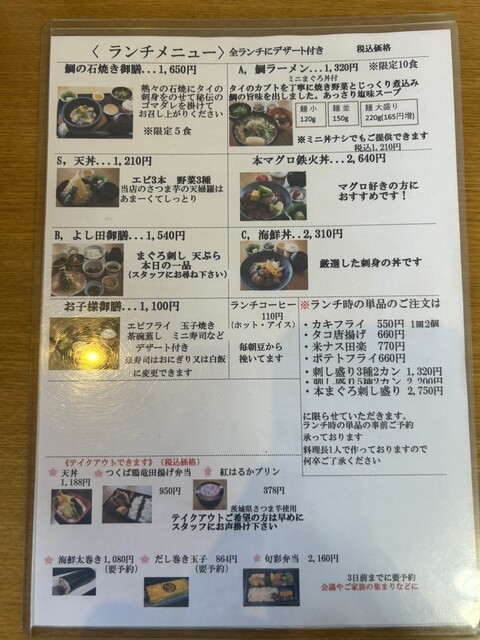 〈 ランチメニュー〉全ランチにデザート付き 税込価格
鯛の石焼き御膳...1,650円
熱々の石焼にタイの
刺身をのせて秘伝の
ゴマダレを掛けて
お召し上がりください
※限定5食
A, 鯛ラーメン...1,320円 ※限定10食
ミニまぐろ丼付
タイのカブトを丁寧に焼き野菜とじっくり煮込み
鯛の旨味を出しました。あっさり塩味スープ
麺 小
120g
麺 並
150g
麺 大盛り
220g(165円増)
※ミニ丼ナシでもご提供できます
税込1,210円
S, 天丼...1,210円
エビ3本 野菜3種
当店のさつま芋の天婦羅は
あまーくてしっとり
本マグロ鉄火丼...2,640円
マグロ好きの方に
おすすめです！
B, よし田御膳...1,540円
まぐろ刺し 天ぷら
本日の一品
(スタッフにお尋ね下さい)
C, 海鮮丼..2,310円
厳選した刺身の丼です
お子様御膳...1,100円
エビフライ 玉子焼き
茶碗蒸し ミニ寿司など
デザート付き
※寿司はおにぎり又は白飯
に変更できます
ランチコーヒー
110円
(ホット・アイス)
毎朝豆から
挽いてます
※ランチ時の単品のご注文は
・カキフライ 550円 1皿2個
・タコ唐揚げ 660円
・米ナス田楽 770円
・ポテトフライ660円
・刺し盛り3種2カン 1,320円
・刺し盛り5種2カン 2,200円
・本まぐろ刺し盛り 2,750円
に限らせていただきます。
ランチ時の単品の事前ご予約
承っております
料理長1人で作っておりますので
何卒ご了承ください
《テイクアウトできます》(税込価格)
★ 天丼
1,188円
★ つくば鶏竜田揚げ弁当
950円
★ 紅はるかプリン
378円
茨城県さつま芋使用
テイクアウトご希望の方は早めに
スタッフにお声掛け下さい
★ 海鮮太巻き1,080円
(要予約)
★ だし巻き玉子 864円
(要予約)
★ 旬彩弁当 2,160円
3日前までに要予約
会議やご家族の集まりなどに